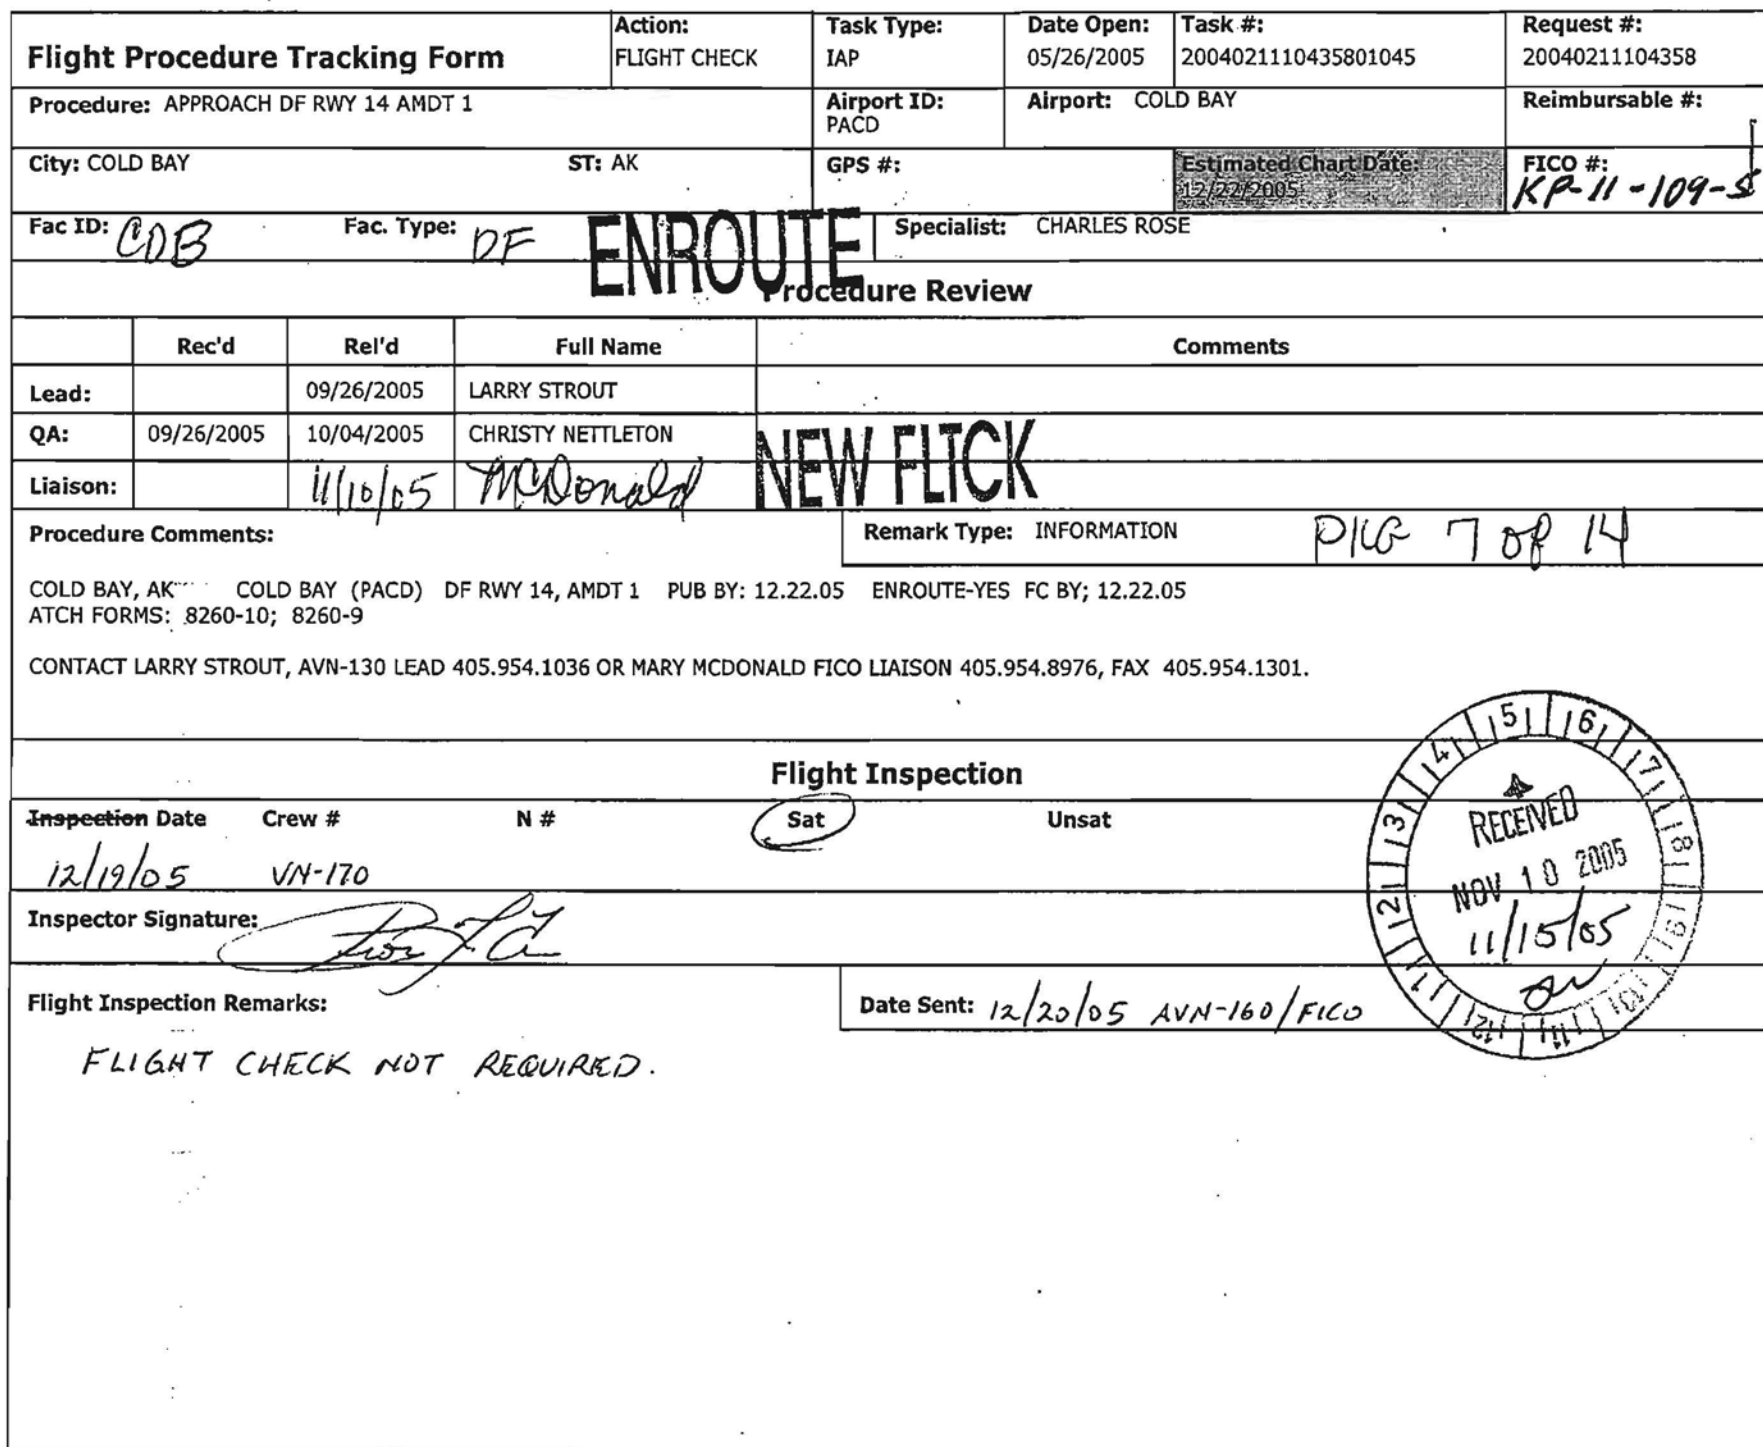 Flight Procedure Tracking Form
Action:
FLIGHT CHECK
Task Type:
IAP
Date Open:
05/26/2005
Task #:
2004021110435801045
Request #:
20040211104358
Procedure: APPROACH DF RWY 14 AMDT 1
Airport ID:
PACD
Airport: COLD BAY
Reimbursable #:
City: COLD BAY
ST: AK
GPS #:
Estimated Chart Date:
12/22/2005
FICO #:
KP-11-109-S
Fac ID: CDB
Fac. Type: DF
ENROUTE
Specialist: CHARLES ROSE
Procedure Review
Rec'd Rel'd Full Name Comments
Lead: 09/26/2005 LARRY STROUT
QA: 09/26/2005 10/04/2005 CHRISTY NETTLETON
Liaison: 11/10/05 McDonald
NEW FLTCK
Procedure Comments:
Remark Type: INFORMATION
PKG 7 OF 14
COLD BAY, AK COLD BAY (PACD) DF RWY 14, AMDT 1 PUB BY: 12.22.05 ENROUTE-YES FC BY; 12.22.05
ATCH FORMS: 8260-10; 8260-9
CONTACT LARRY STROUT, AVN-130 LEAD 405.954.1036 OR MARY MCDONALD FICO LIAISON 405.954.8976, FAX 405.954.1301.
Flight Inspection
Inspection Date Crew # N # Sat Unsat
12/19/05 VN-170
1 2 3 4 5 6 7 8 9 10 11 12
RECEIVED
NOV 10 2005
11/15/05
Inspector Signature:
Flight Inspection Remarks:
Date Sent: 12/20/05 AVN-160/FICO
FLIGHT CHECK NOT REQUIRED.